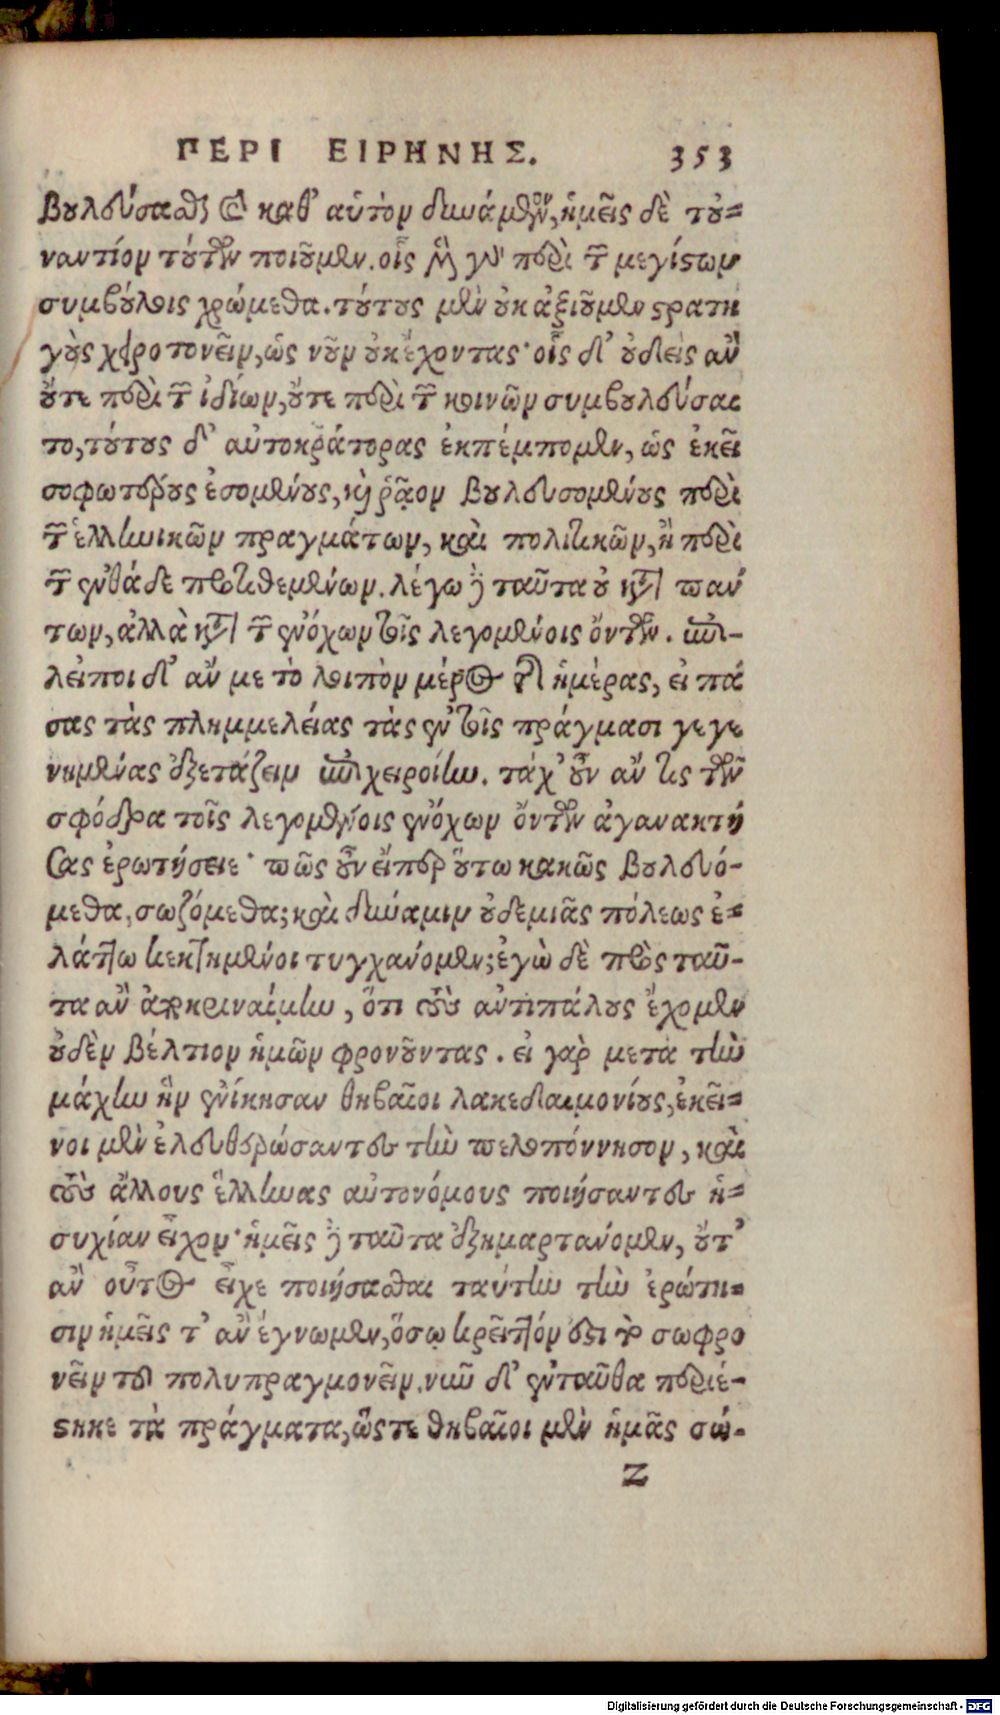 ΠΕΡΙ ΕΙΡΗΝΗΣ. 353
βουλεύσασθαι καὶ καθ' αὑτὸν δυνάμενον, ἡμεῖς δὲ τοὐ-
ναντίον τούτων ποιοῦμεν. οἷς μὲν γὰρ περὶ τῶν μεγίστων
συμβούλοις χρώμεθα. τούτους μὲν οὐκ ἀξιοῦμεν στρατη
γοὺς χειροτονεῖν, ὡς νοῦν οὐκ ἔχοντας· οἷς δ' οὐδεὶς ἂν
οὔτε περὶ τῶν ἰδίων, οὔτε περὶ τῶν κοινῶν συμβουλεύσαι
το, τούτους δ' αὐτοκράτορας ἐκπέμπομεν, ὡς ἐκεῖ
σοφωτέρους ἐσομένους, καὶ ῥᾷον βουλευσομένους περὶ
τῶν ἑλληνικῶν πραγμάτων, καὶ πολιτικῶν, ἢ περὶ
τῶν ἐνθάδε προτιθεμένων. λέγω δὲ ταῦτα οὐ κατὰ πάν
των, ἀλλὰ κατὰ τῶν ἐνόχων τοῖς λεγομένοις ὄντων. ἐπι-
λείποι δ' ἄν με τὸ λοιπὸν μέρος τῆς ἡμέρας, εἰ πά
σας τὰς πλημμελείας τὰς ἐν τοῖς πράγμασι γεγε
νημένας ἐξετάζειν ἐπιχειροίην. τάχ' οὖν ἄν τις τῶν
σφόδρα τοῖς λεγομένοις ἐνόχων ὄντων ἀγανακτή
σας ἐρωτήσειε· πῶς οὖν εἴπερ οὕτω κακῶς βουλευό-
μεθα, σωζόμεθα; καὶ δύναμιν οὐδεμιᾶς πόλεως ἐ-
λάττω κεκτημένοι τυγχάνομεν; ἐγὼ δὲ πρὸς ταῦ-
τα ἂν ἀποκριναίμην, ὅτι τοὺς ἀντιπάλους ἔχομεν
οὐδὲν βέλτιον ἡμῶν φρονοῦντας. εἰ γὰρ μετὰ τὴν
μάχην ἣν ἐνίκησαν θηβαῖοι λακεδαιμονίους, ἐκεῖ-
νοι μὲν ἐλευθερώσαντες τὴν πελοπόννησον, καὶ
τοὺς ἄλλους ἕλληνας αὐτονόμους ποιήσαντες ἡ-
συχίαν εἶχον· ἡμεῖς δὲ ταῦτα ἐξημαρτάνομεν, οὔτ'
ἂν οὗτος εἶχε ποιήσασθαι ταύτην τὴν ἐρώτη-
σιν ἡμεῖς τ' ἂν ἔγνωμεν, ὅσῳ κρεῖττόν ἐστι τὸ σωφρο
νεῖν τοῦ πολυπραγμονεῖν. νῦν δ' ἐνταῦθα περιέ-
στηκε τὰ πράγματα, ὥστε θηβαῖοι μὲν ἡμᾶς σώ-
Z
Digitalisierung gefördert durch die Deutsche Forschungsgemeinschaft - DFG